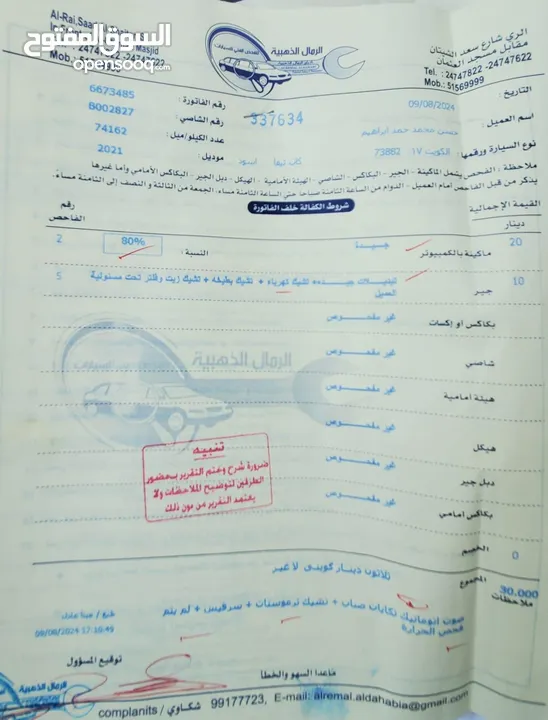 السوق المفتوح
opensooq.com
Al-Rai, Saad
Masjid
Tel. : 24747822 -24747622
Mob.: 51569999
الرمال الذهبية
للفحص الفني للسيارات
الري شارع سعد
مقابل مسجد العثمان
Tel. : 24747822 -24747622
Mob.: 51569999
التاريخ : 09/08/2024
337634
رقم الفاتورة : 6673485
اسم العميل : حسن محمد حمد ابراهيم
رقم الشاصي : B002827
نوع السيارة ورقمها : الكويت ١٧ 73882
اسود
عدد الكيلو/ميل : 74162
موديل : 2021
ملاحظة : الفحص يشمل الماكينة - الجير - البكاكس - الشاصي - الهيئة الأمامية - الهيكل - دبل الجير - البكاكس الأمامي وأما غيرها
يذكر من قبل الفاحص أمام العميل - الدوام من الساعة الثامنة صباحا حتى الساعة الثامنة مساء. الجمعة من الثالثة و النصف إلى الثامنة مساءً.
القيمة الإجمالية
شروط الكفالة خلف الفاتورة
دينار
رقم الفاحص
20 ماكينة بالكمبيوتر جيدة النسبة : 80% 2
10 جير تبديلات جيده + تشيك كهرباء + تشيك بطيخه + تشيك زيت وفلتر تحت مسئولية 5
العميل
بكاكس أو إكسات غير مفحوص
شاصي غير مفحوص
هيئة أمامية غير مفحوص
هيكل غير مفحوص
دبل جير غير مفحوص
بكاكس أمامي غير مفحوص
الرمال الذهبية
تنبيه
ضرورة شرح وختم التقرير بحضور
الطرفين لتوضيح الملاحظات ولا
يعتمد التقرير من دون ذلك
الخصم 0
المجموع 30.000 ثلاثون دينار كويتي لا غير
ملاحظات
صوت اتوماتيك تكايات صباب + تشيك ترموستات + سرفيس + لم يتم
فحص الحرارة
09/08/2024 17:16:49
توقيع المسؤول
ماعدا السهو والخطأ
الرمال الذهبية
complanits / شكاوي 99177723, E-mail: alremal.aldahabia@gmail.com